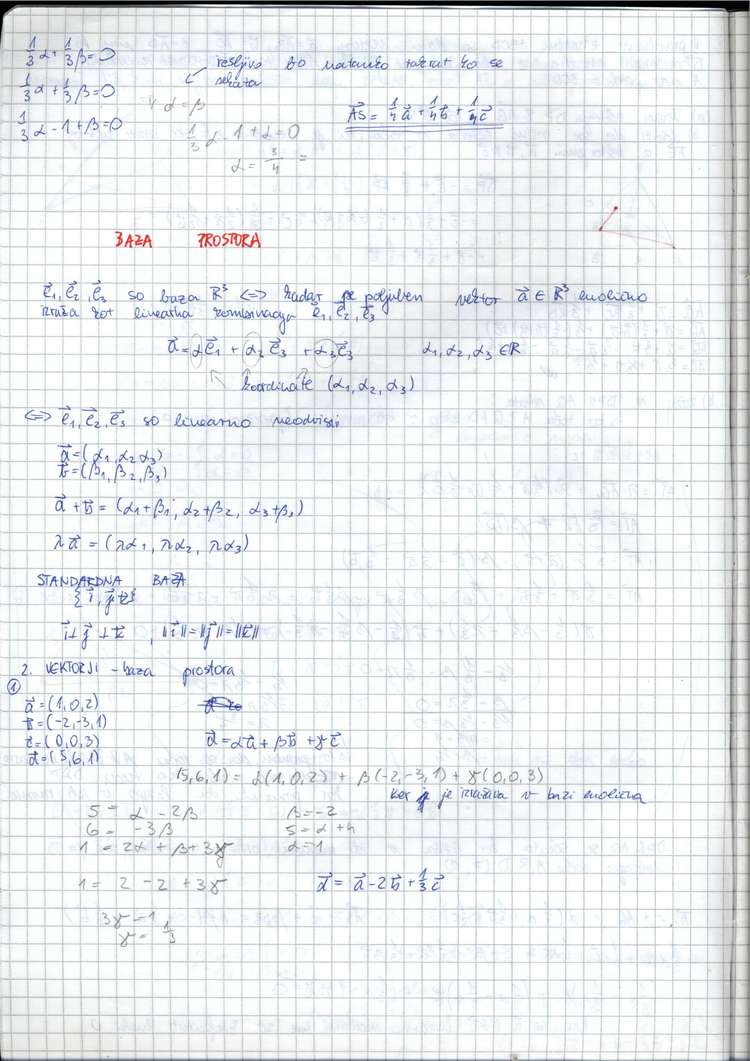 1/3 α + 1/3 β = 0
1/3 α + 1/3 β = 0
1/3 α - 1 + β = 0
rešljivo bo natanko takrat ko se
sekata
α = β
1/3 α - 1 + α = 0
α = 3/4 =
AS⃗ = 1/4 a⃗ + 1/4 b⃗ + 1/4 c⃗
BAZA PROSTORA
e⃗₁, e⃗₂, e⃗₃ so baza R³ <=> kadar se poljuben vektor a⃗ ∈ R³ enolično
izraža kot linearna kombinacija e⃗₁, e⃗₂, e⃗₃
a⃗ = αe⃗₁ + α₂e⃗₃ + α₃e⃗₃ α₁, α₂, α₃ ∈ R
koordinate (α₁, α₂, α₃)
<=> e⃗₁, e⃗₂, e⃗₃ so linearno neodvisni
a⃗ = (α₁, α₂ α₃)
b⃗ = (β₁, β₂, β₃)
a⃗ + b⃗ = (α₁+β₁, α₂+β₂, α₃+β₃)
λa⃗ = (λα₁, λα₂, λα₃)
STANDARDNA BAZA
{i⃗, j⃗, k⃗}
i⃗ ⊥ j⃗ ⊥ k⃗ , ||i⃗|| = ||j⃗|| = ||k⃗||
2. VEKTORJI - baza prostora
①
a⃗ = (1, 0, 2)
b⃗ = (-2, -3, 1)
c⃗ = (0, 0, 3)
d⃗ = (5, 6, 1)
d⃗ = αa⃗ + βb⃗ + γc⃗
(5, 6, 1) = α(1, 0, 2) + β(-2, -3, 1) + γ(0, 0, 3)
ker je izražava v bazi enolična
5 = α - 2β
6 = -3β
1 = 2α + β + 3γ
β = -2
5 = α + 4
α = 1
1 = 2 - 2 + 3γ
3γ = 1
γ = 1/3
d⃗ = a⃗ - 2b⃗ + 1/3 c⃗